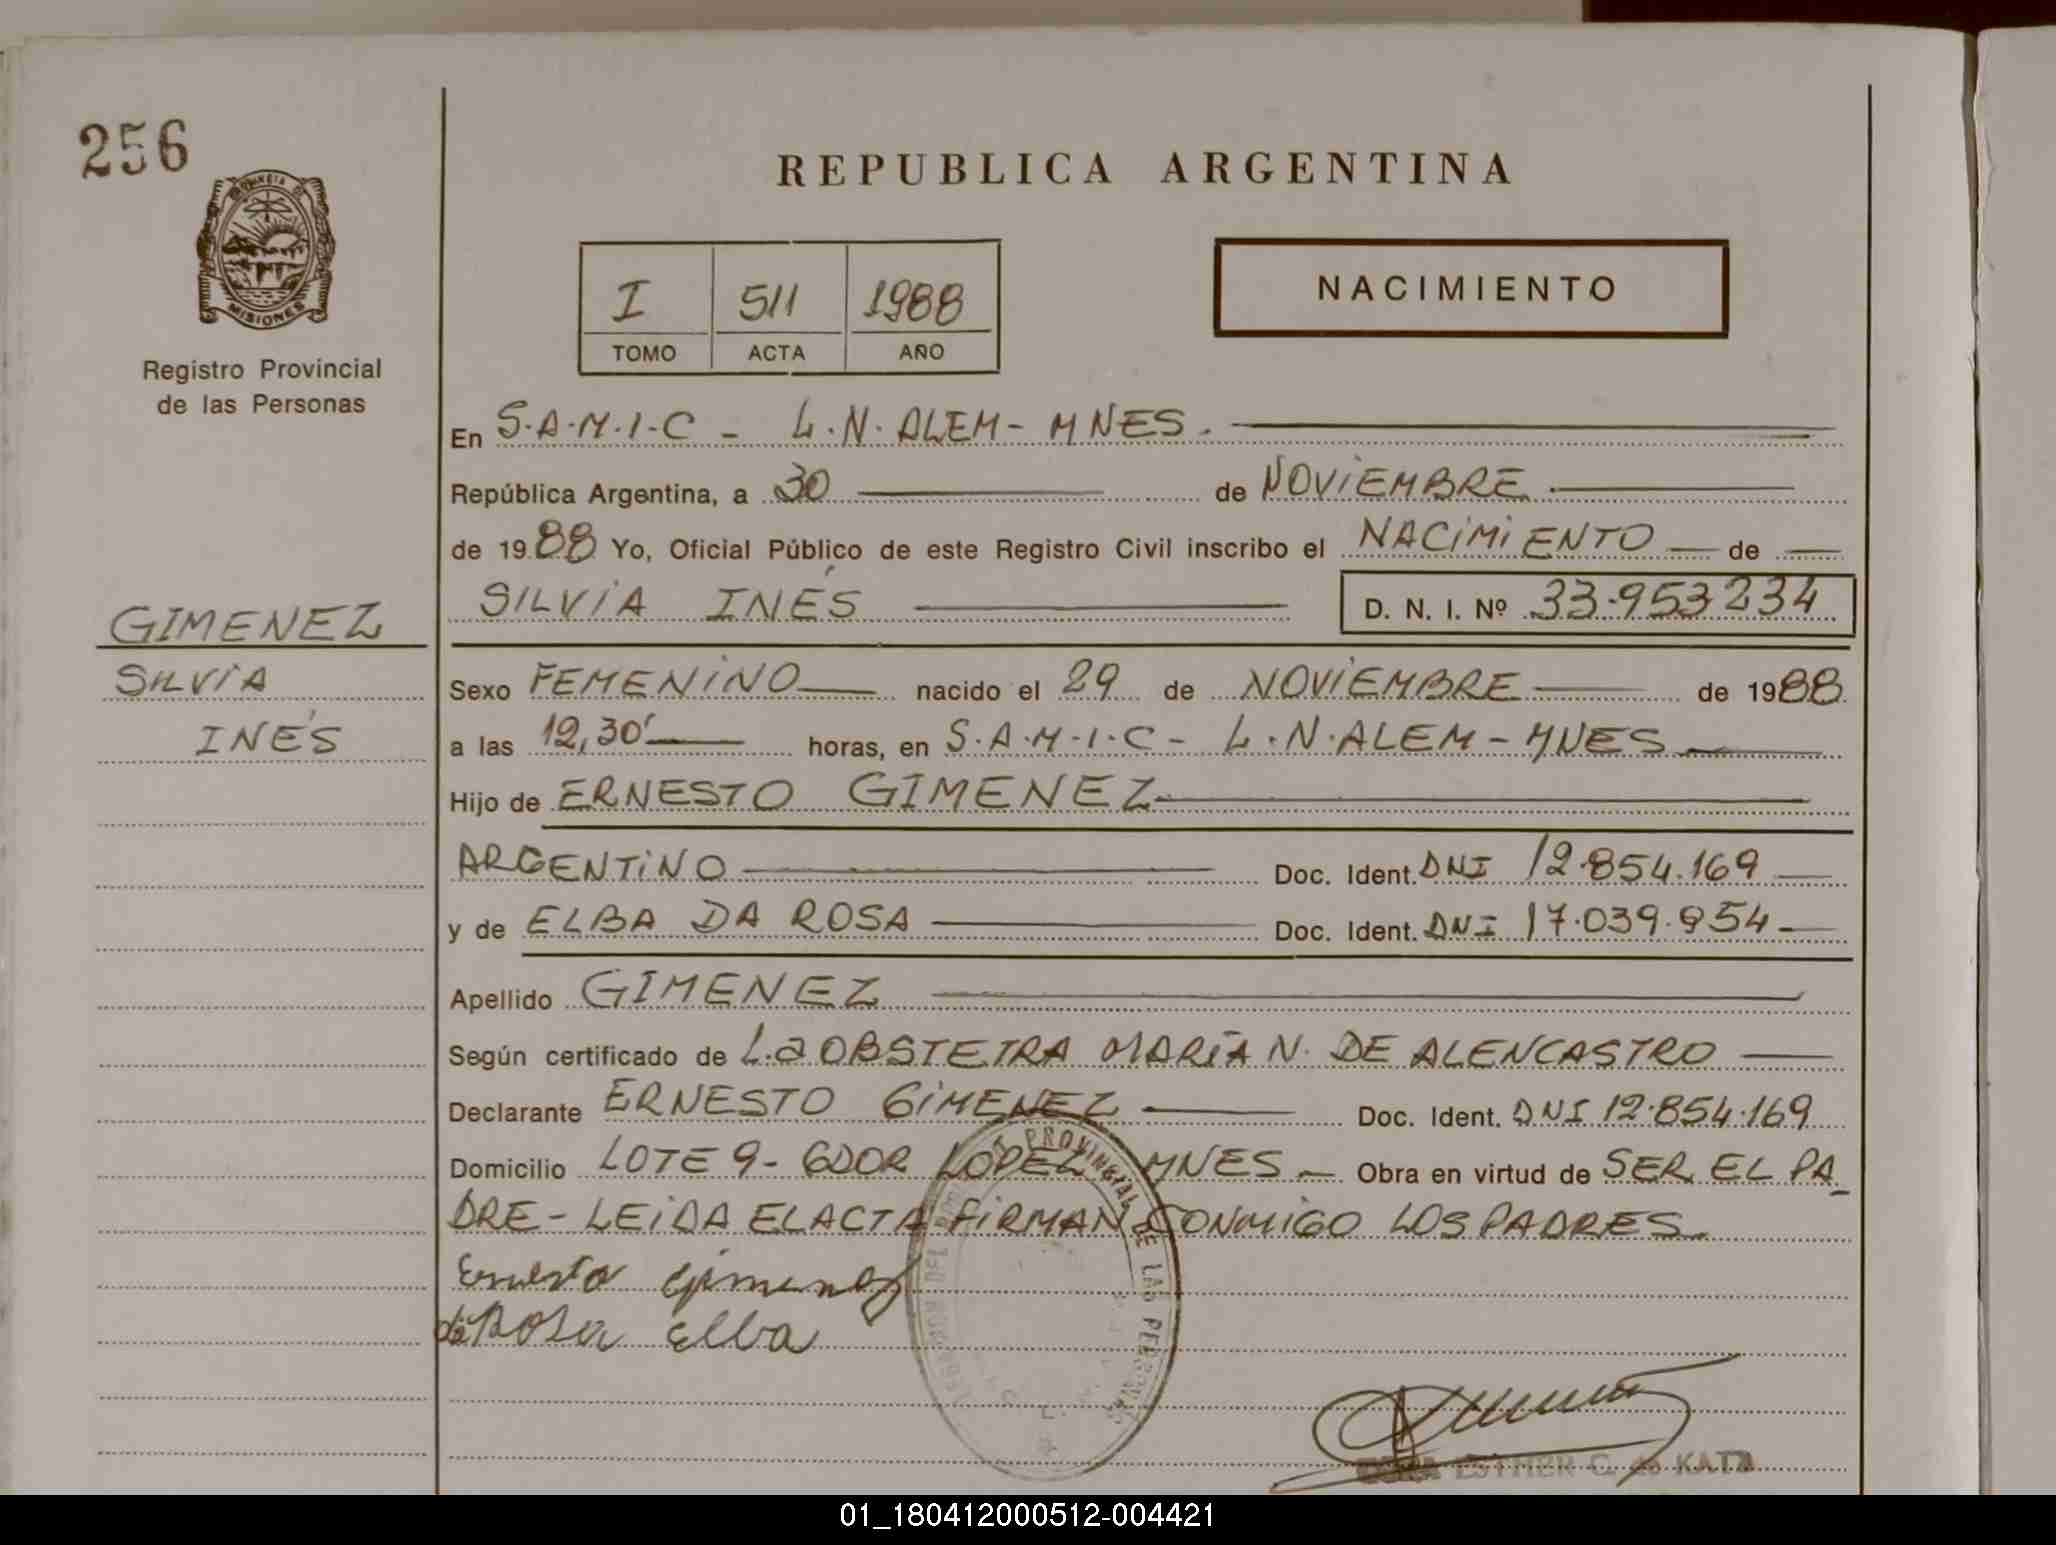 256
REPUBLICA ARGENTINA
PROVINCIA DE
MISIONES
Registro Provincial
de las Personas
I 511 1988
TOMO ACTA AÑO
NACIMIENTO
En S.A.M.I.C - L.N. ALEM - MNES.
República Argentina, a 30 de NOVIEMBRE
de 1988 Yo, Oficial Público de este Registro Civil inscribo el NACIMIENTO de
SILVIA INÉS D. N. I. Nº 33.953234
GIMENEZ
SILVIA
INÉS
Sexo FEMENINO nacido el 29 de NOVIEMBRE de 1988
a las 12,30' horas, en S.A.M.I.C - L.N. ALEM - MNES
Hijo de ERNESTO GIMENEZ
ARGENTINO Doc. Ident. DNI 12.854.169
y de ELBA DA ROSA Doc. Ident. DNI 17.039.954
Apellido GIMENEZ
Según certificado de La OBSTETRA MARÍA N. DE ALENCASTRO
Declarante ERNESTO GIMENEZ Doc. Ident. DNI 12.854.169
Domicilio LOTE 9 - GDOR LOPEZ MNES - Obra en virtud de SER EL PA_
DRE - LEIDA EL ACTA FIRMAN CONMIGO LOS PADRES.
Ernesto Gimenez
da Rosa Elba
PROVINCIAL DE LAS PERSONAS
ESTHER C. de KATZ
01_180412000512-004421